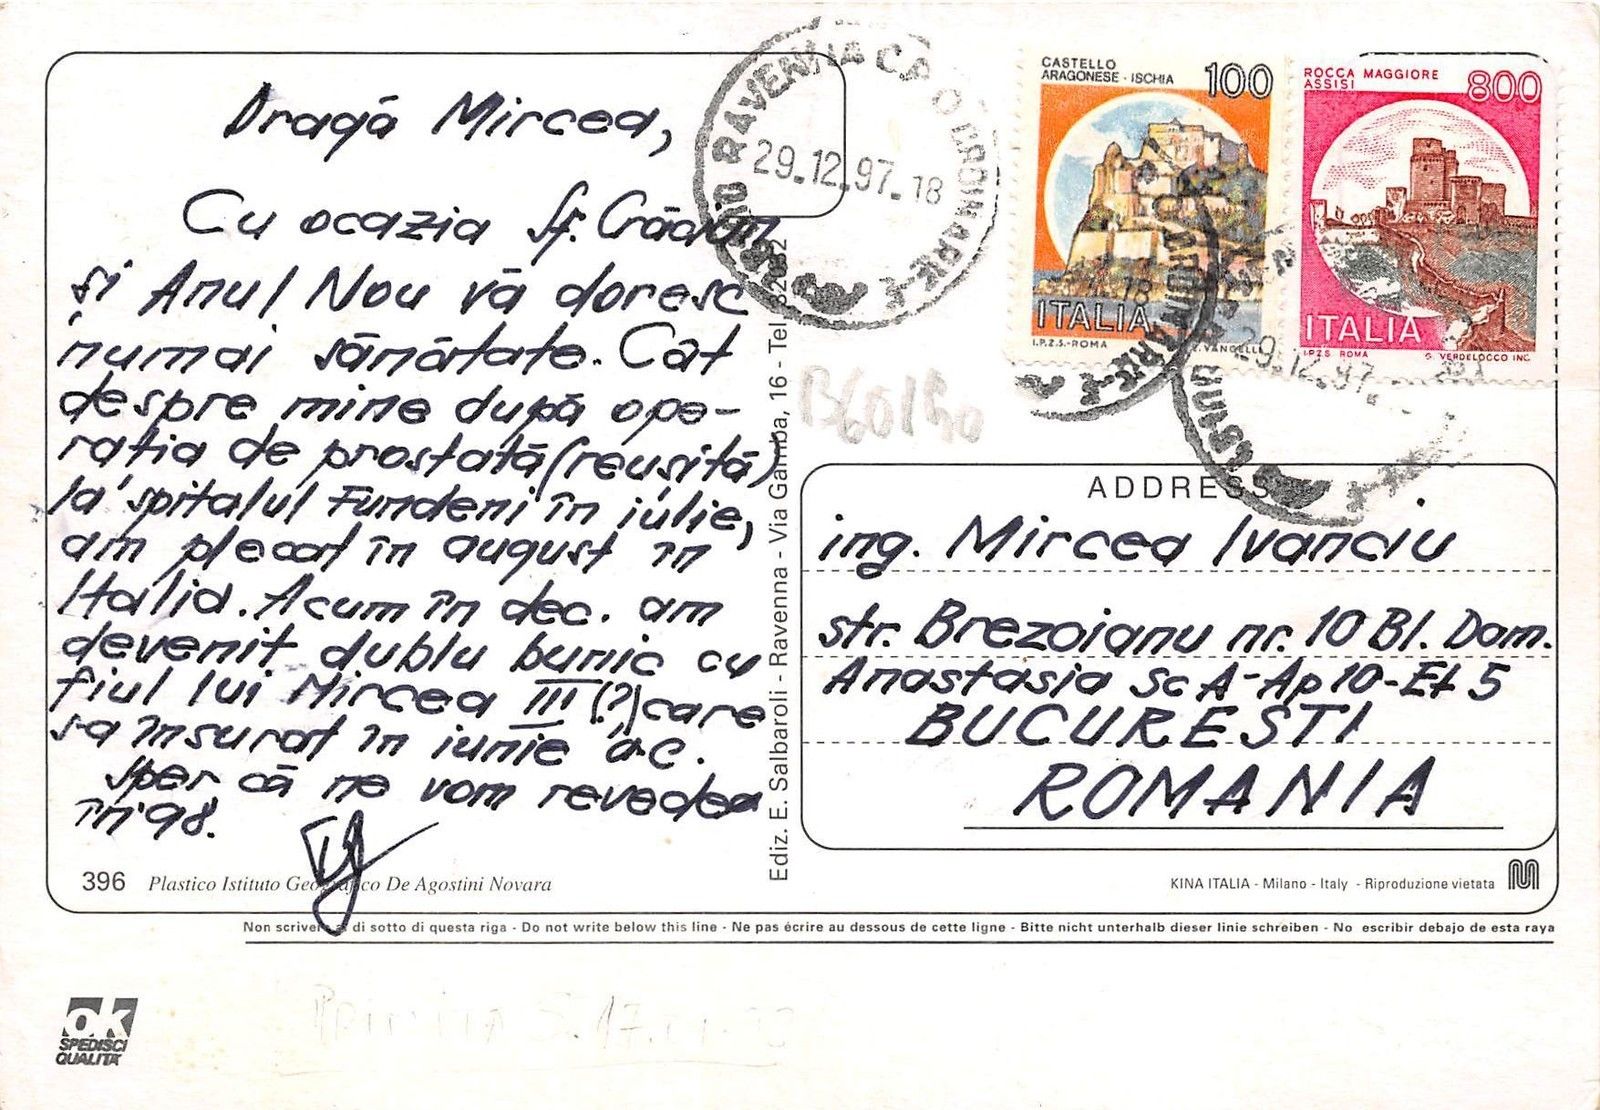 Dragă Mircea,
Cu ocazia Sf. Crăciun
și Anul Nou vă doresc
numai sănătate. Cât
despre mine după ope-
rația de prostată (reușită)
la spitalul Fundeni în iulie,
am plecat în august în
Italia. Acum în dec. am
devenit dublu bunic cu
fiul lui Mircea III (?) care
s-a însurat în iunie a.c.
Sper că ne vom revedea
în '98.
396 Plastico Istituto Geografico De Agostini Novara
Ediz. E. Salbaroli - Ravenna - Via Gamba, 16 - Tel.
RAVENNA C.P.O.
29.12.97.18
CASTELLO
ARAGONESE - ISCHIA
100
ITALIA
I.P.Z.S. - ROMA
ROCCA MAGGIORE
ASSISI
800
ITALIA
I.P.Z.S. ROMA G. VERDELOCCO INC.
29.12.97
ADDRESS
ing. Mircea Ivanciu
str. Brezoianu nr. 10 Bl. Dom.
Anastasia Sc A - Ap 10 - Et 5
BUCUREȘTI
ROMANIA
KINA ITALIA - Milano - Italy - Riproduzione vietata
Non scrivere al di sotto di questa riga - Do not write below this line - Ne pas écrire au dessous de cette ligne - Bitte nicht unterhalb dieser linie schreiben - No escribir debajo de esta raya
ok
SPEDISCI
QUALITA'